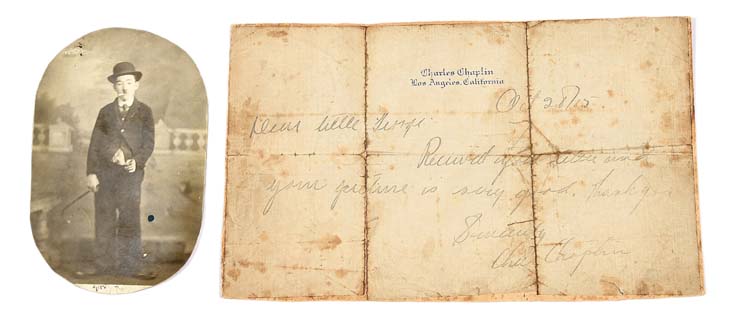 Charles Chaplin
Los Angeles, California
Oct 28/15.
Dear
Received your letter and
your picture is very good, thank you
Sincerely
Chas Chaplin